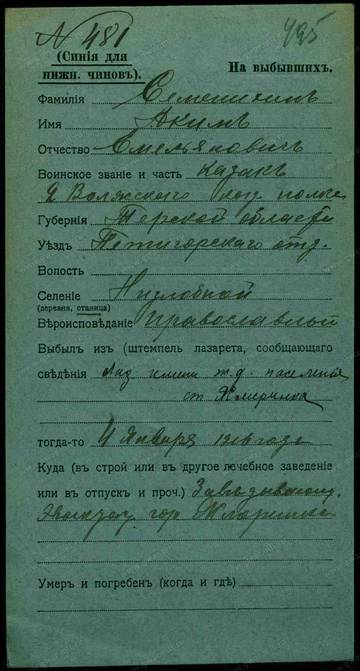 № 481
495
(Синія для
нижн. чиновъ).
На выбывшихъ.
Фамилія Семенихинъ
Имя Акимъ
Отчество Емельяновичъ
Воинское званіе и часть казакъ
2 Волжского каз. полка
Губернія Терской области
Уѣздъ Пятигорскаго отд.
Волость
Селеніе Незлобной
(деревня, станица)
Вѣроисповѣданіе Православный
Выбылъ изъ (штемпель лазарета, сообщающаго
свѣдѣнія Лаз имени ж.д.
ст Жмеринка
тогда-то 4 Января 1916 года
Куда (въ строй или въ другое лечебное заведеніе
или въ отпускъ и проч.) Завѣдывающ.
гор Жмеринка
Умеръ и погребенъ (когда и гдѣ)